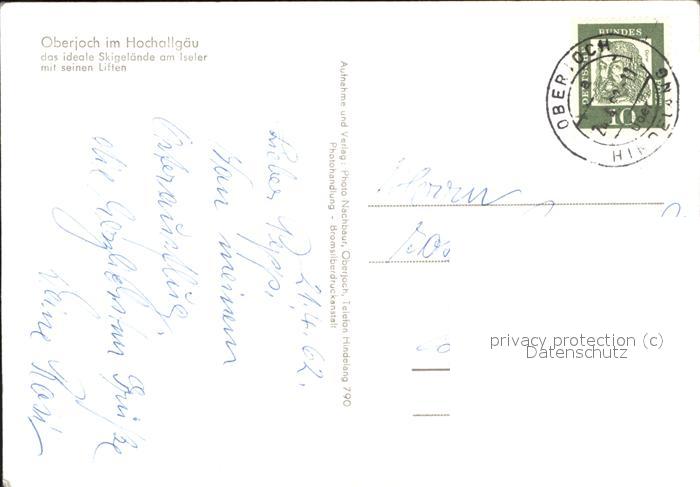 Oberjoch im Hochallgäu
das ideale Skigelände am Iseler
mit seinen Liften
Aufnahme und Verlag: Photo Nachbaur, Oberjoch, Telefon Hindelang 790
Photohandlung - Bromsilberdruckanstalt
21.4.62.
Lieber Pepp,
Von meinem
die herzlichsten Grüße
Deine Rosi
DEUTSCHE BUNDES
10
OBERJOCH
HINDELANG
Herrn
privacy protection (c)
Datenschutz